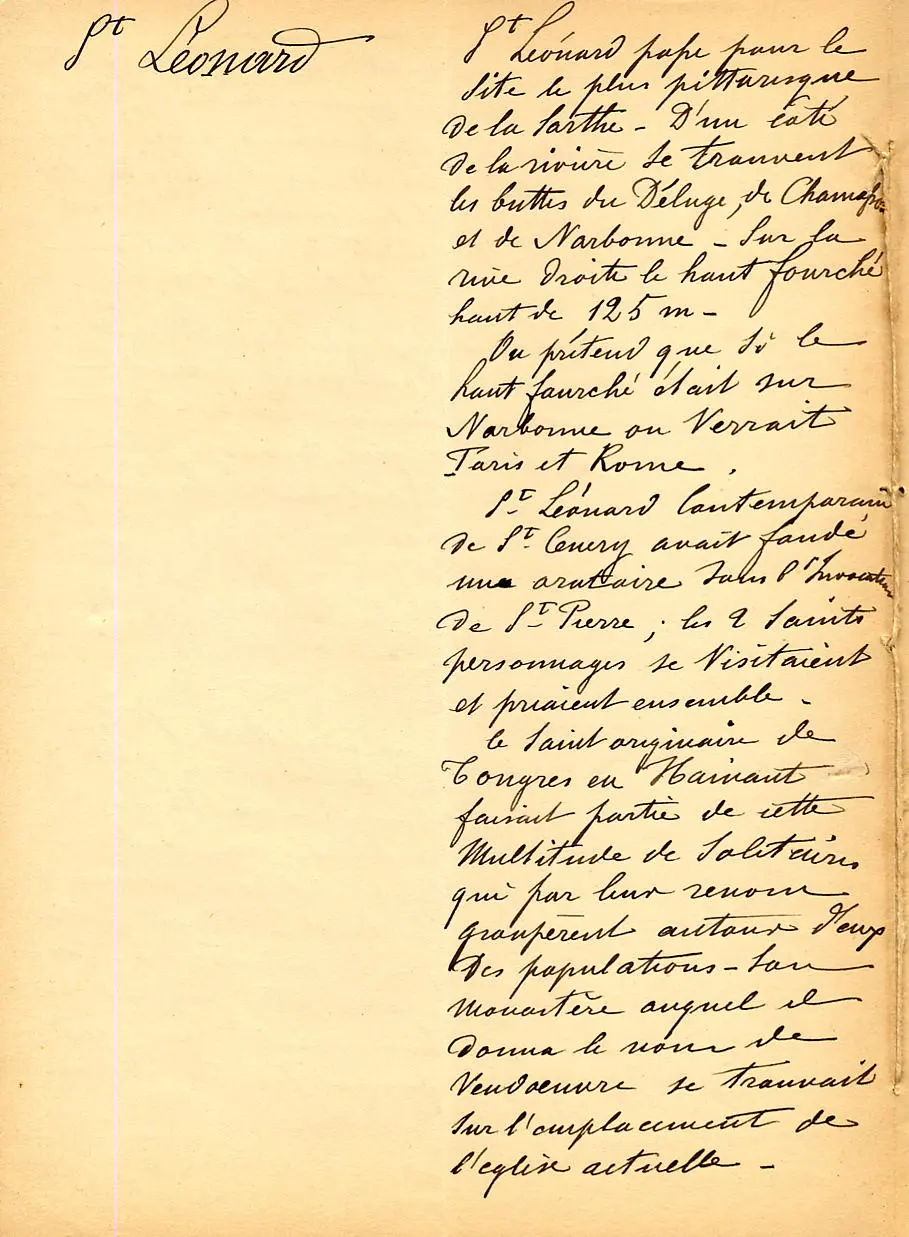 St Léonard
St Léonard passe pour le
site le plus pittoresque
de la Sarthe - D'un côté
de la rivière se trouvent
les buttes du Déluge, de
et de Narbonne - Sur la
rive droite le haut fourché
haut de 125 m -
On prétend que si le
haut fourché était sur
Narbonne on Verrait
Paris et Rome .
St Léonard Contemporain
de St Cenery avait fondé
une oratoire sous l'Invocation
de St Pierre ; les 2 Saints
personnages se Visitaient
et priaient ensemble .
le Saint originaire de
Tongres en Hainaut
faisait partie de cette
Multitude de Solitaires
qui par leur renom
groupèrent autour d'eux
Des populations - Son
Monastère auquel il
donna le nom de
Vendoeuvre se trouvait
Sur l'emplacement de
l'eglise actuelle -